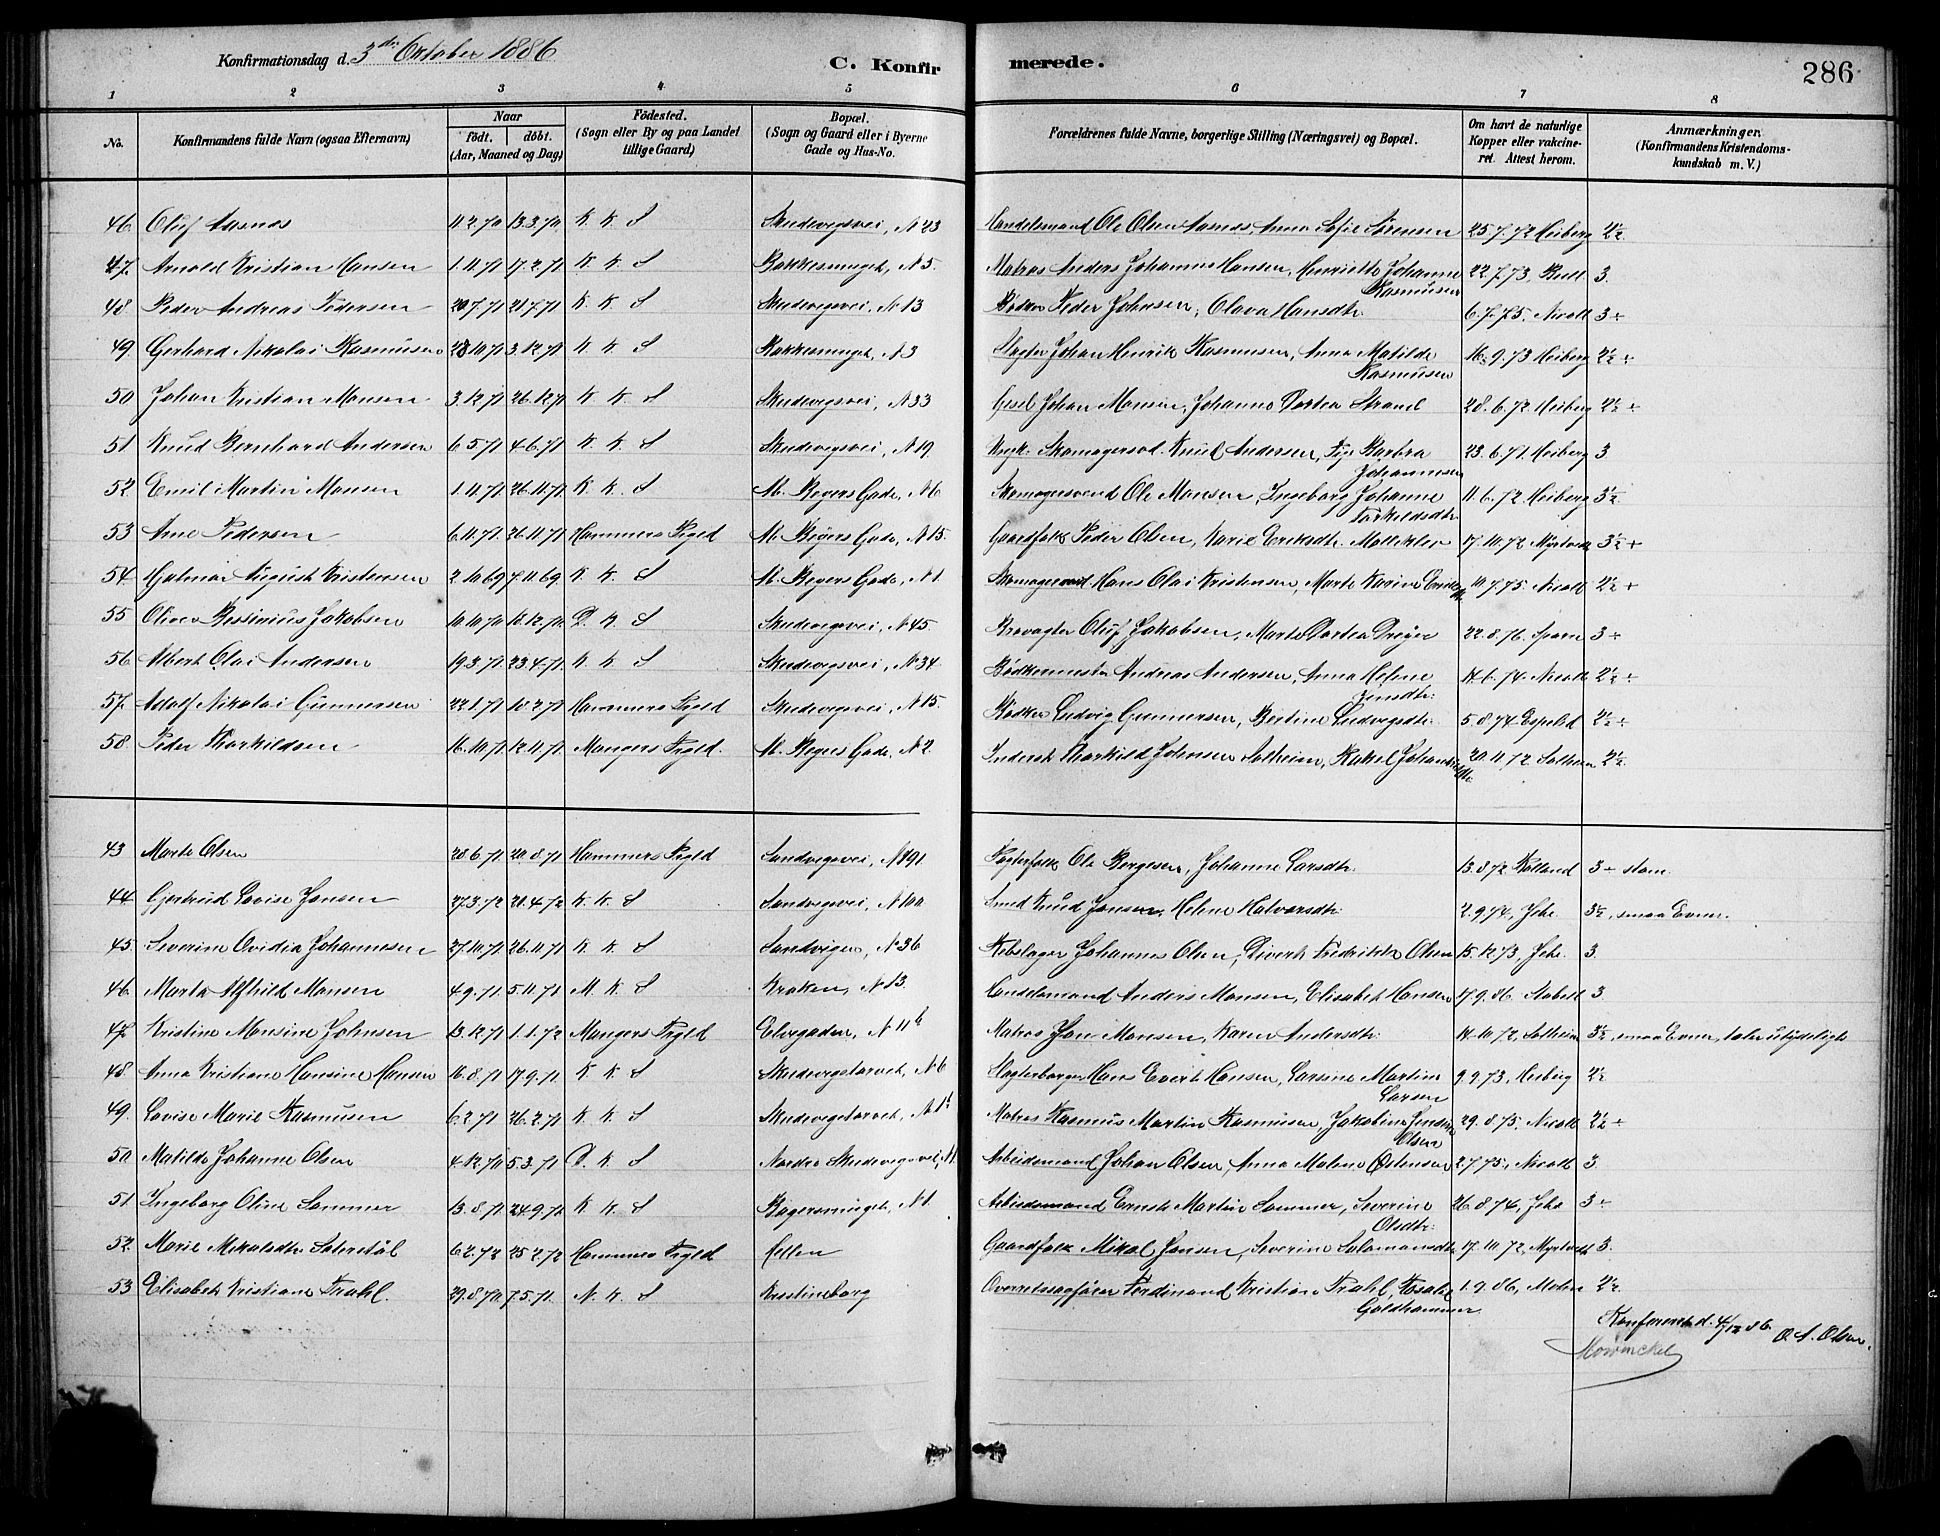 Konfirmationsdag d. 3die Oktober 1886
C. Konfir merede.
286
1 2 3 4 5 6 7 8
No.
Konfirmandens fulde Navn (ogsaa Efternavn)
Naar
födt. döbt.
(Aar, Maaned og Dag)
Födested.
(Sogn eller By og paa Landet tillige Gaard)
Bopæl.
(Sogn og Gaard eller i Byerne Gade og Hus-No.
Forældrenes fulde Navne, borgerlige Stilling (Næringsvei) og Bopæl.
Om havt de naturlige Kopper eller vakcineret. Attest herom.
Anmærkninger.
(Konfirmandens Kristendomskundskab m. V.)
46 Oluf Aasnæs 11.2.70 13.3.70 K. K. S Skudevigsvei, N 23 Handelsmand Ole Olsen Aasnæs, Anna Sofie Sörensen 25.7.72 Heiberg 2½
47. Arnold Kristian Hansen 1.11.71 17.2.71 K. K. S Bakkesmuget, N 5. Matros Anders Johannes Hansen, Henriette Johanne Rasmusen 22.7.73, Bull 3.
48. Peder Andreas Pedersen 20.7.71 21.7.71 K. K. S Skudevigsvei, N 13 Bödker Peder Johnsen, Olava Hansdtr. 6.7.75. Nicoll 3÷
49. Gerhard Nikolai Rasmusen 28.10.71 3.12.71 K. K. S Bakkesmuget, N 3 Slagter Johan Henrik Rasmusen, Anna Matilde Rasmusen 16.9.73 Heiberg 2½ ÷
50 Johan Kristian Monsen 3.12.71 26.12.71 K. K. S Skudevigsvei, N 33 Gesel Johan Monsen, Johanne Dortea Strand 28.6.72 Heiberg 2½ ÷
51. Knud Bernhard Andersen 6.5.71 4.6.71 K. K. S Skudevigsvei, N 19. Ungk. Skomagersvd. Knud Andersen, Pige Barbra Johannesen 23.6.71. Heiberg 3
52. Emil Martin Monsen 1.11.71 26.11.71 K. K. S M. Beyers Gade, N 6 Skomagersvend Ole Monsen, Ingeborg Johanne Torkildsdtr. 11.6.72. Heiberg 3½
53 Arne Pedersen 6.11.71. 26.11.71 Hammers Prgld M. Beyers Gade, N 15. Gaardfolk Peder Olsen, Marie Eriksdtr. 17.10.72 Myrtvedt 3½ +
54. Hjalmar August Kristensen 2.10.69 7.11.69. K. K. S M. Beyers Gade, N 1. Skomagersvd. Hans Olai Kristensen, Marte Karine 10.7.75. Nicoll 2½ +
55 Oliver Bessinius Jakobsen 10.10.70 18.12.70. D. K. S Skudevigsvei, N 45. Brovagter Oluf Jakobsen, Marte Dortea Dreyer 22.8.76. Sparn 3÷
56 Albert Olai Andersen 19.3.71. 23.4.71. K. K. S Skudevigsvei, N 34. Bödkermester Andreas Andersen, Anna Helene Jensdtr. 14.6.74. Nicoll 2½ ÷
57. Adolf Nikolai Gunnersen 22.1.71 10.2.71 Hammers Prgld Skudevigsvei, N 15. Bödker Ludvig Gunnersen, Bertine Ludvigsdtr. 5.8.74 Espeld 2½ ÷
58. Peder Thorkildsen 16.10.71 12.11.71 Mangers Prgld. M. Beyers Gade, N 2. Inderst Thorkild Johnsen Solheim, Rakel 20.11.72. Solheim 2½.
43 Marte Olsen 28.6.71 20.8.71 Hammers Prgld Sandvigsvei, N 191 Pagterfolk Ole Börgesen, Johanne Larsdtr. 13.8.72 Rolland 3÷ stam.
44 Gjertrud Lovise Jansen 27.3.72 21.4.72 K. K. S Sandvigsvei, N 100 Smed Knud Jansen, Helene Halvorsdtr. 2.9.74. Jebe. 3½, smaa Evner.
45. Severine Ovidia Johannesen 27.10.71 26.11.71 K. K. S Sandvigen, N 36 Rebslager Johannes Olsen, Divert Fredrikke Olsen 15.12.73, Jebe. 3.
46 Marta Alfhild Monsen 4.9.71. 5.11.71 M. K. S Kroken, N 13. Handelsmand Anders Monsen, Elisabet Hansen 17.9.86. Stabell 3
47. Kristine Monsine Johnsen 13.12.71 1.1.72 Mangers Prgld Elvegaden, N 11 b Matros Jon Monsen, Karen Andersdtr. 14.10.72, Solheim 3½, smaa Evner, taler utydeligt
48. Anna Kristiane Hansine Hansen 16.8.71 17.9.71. K. K. S Skudevigstorvet, N 6 Slagterborger Hans Evert Hansen, Larsine Martine Larsen 9.9.73, Heiberg 2½
49. Lovise Marie Rasmusen 6.2.71 26.2.71 K. K. S Skudevigstorvet, N 1 b Matros Rasmus Martin Rasmusen, Jakobine Jensine Olsen 29.8.75. Nicoll 2½ ÷
50 Matilde Johanne Olsen 4.12.70 5.3.71 D. K. S Nordre Skudevigsvei, N 1. Arbeidsmand Johan Olsen, Anna Malene Östensen 2.7.75. Nicoll 3.
51 Ingeborg Oline Sommer 13.8.71 24.9.71 K. K. S Bagersmuget, N 1. Arbeidsmand Ernst Martin Sommer, Severine Olsdtr. 26.8.74, Jebe 3÷
52. Marie Mikalsdtr. 6.2.72 25.2.72 Hammers Prgld Hellen Gaardfolk Mikal Jansen, Severine Salamonsdtr. 17.10.72, Myrtvedt 3.
53 Elisabeth Kristiane Prahl. 29.8.70 7.5.71. N. K. S Kristineborg Overretssagförer Ferdinand Kristian Prahl, Goldhammer 1.9.86, Mohn 2½
Konfereret d. 4/12 86. O. A. Olsen.
Mowinckel